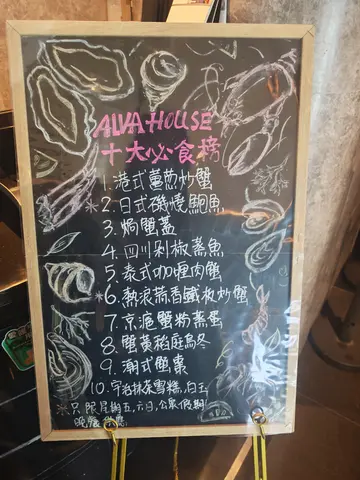 ALVA HOUSE
十大必食榜
1. 港式薑葱炒蟹
※2. 日式磯燒鮑魚
3. 焗蟹蓋
4. 四川剁椒蒸魚
5. 泰式咖喱肉蟹
※6. 熱浪蒜香鐵板炒蟹
7. 京滬蟹粉蒸蛋
8. 蟹黃稻庭烏冬
9. 潮式蟹棗
10. 宇治抹茶雪糕,白玉
※只限星期五,六日,公眾假期
晚餐供應